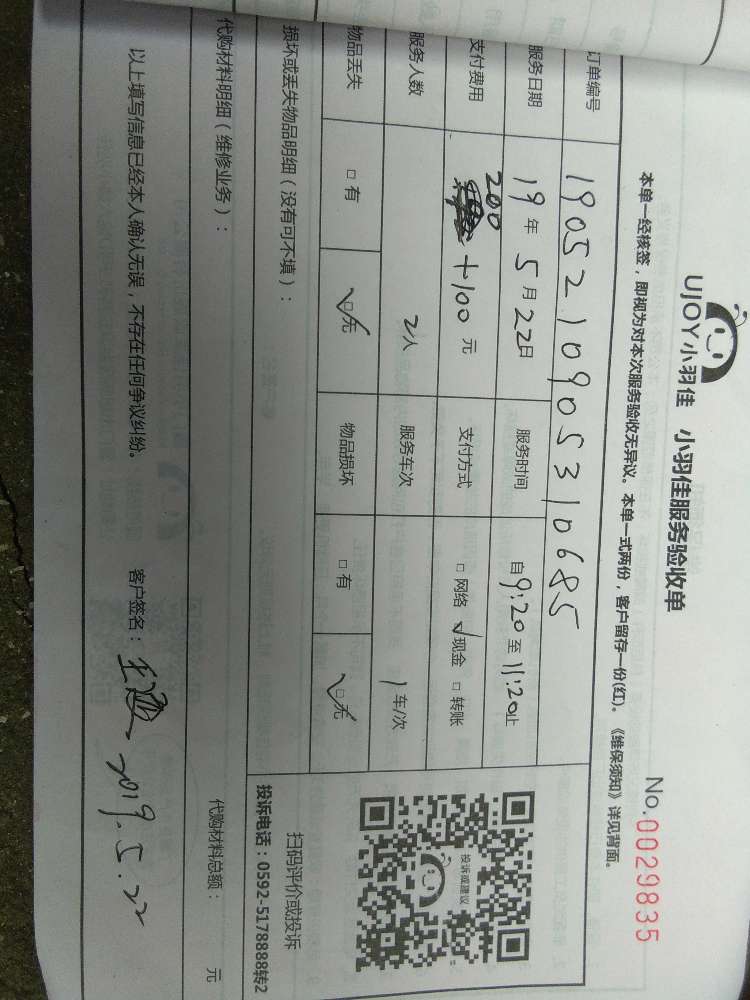 UJOY小羽佳 小羽佳服务验收单
No.0029835
本单一经核签，即视为对本次服务验收无异议。本单一式两份，客户留存一份(红)。《维保须知》详见背面。
订单编号 1905210905310685
服务日期 19年5月22日 服务时间 自9:20至11:20止
支付费用 200+100元 支付方式 □网络 ☑现金 □转账
服务人数 2人 服务车次 1车/次
物品丢失 □有 ☑无 物品损坏 □有 ☑无
投诉或建议
扫码评价或投诉
投诉电话：0592-5178888转2
损坏或丢失物品明细（没有可不填）：
代购材料明细（维修业务）： 代购材料总额： 元
以上填写信息已经本人确认无误，不存在任何争议纠纷。 客户签名： 2019.5.22